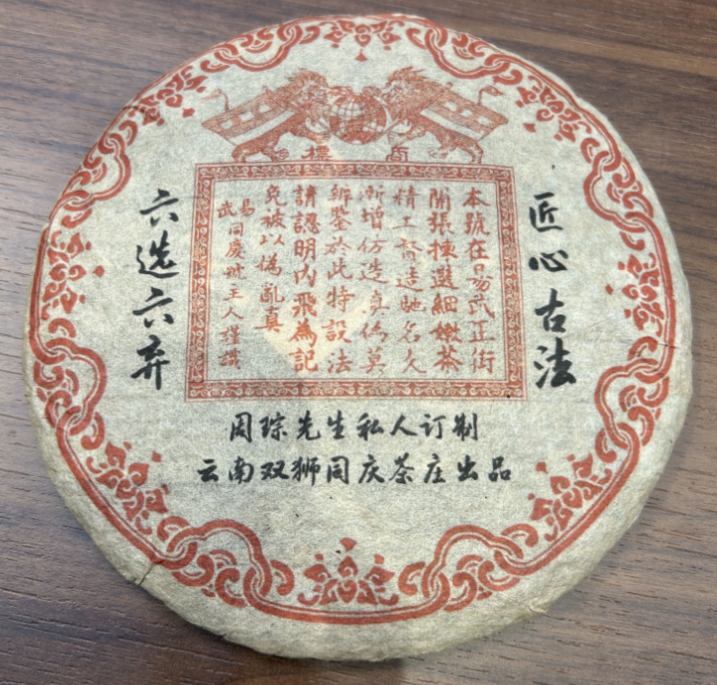 商標
匠心古法
本號在易武正街
開張揀選細嫩茶
精工督造馳名久
漸增仿造真偽莫
辨鑒於此特設法
請認明內飛為記
免被以偽亂真
易武同慶號主人謹識
六选六弃
周琮先生私人订制
云南双狮同庆茶庄出品